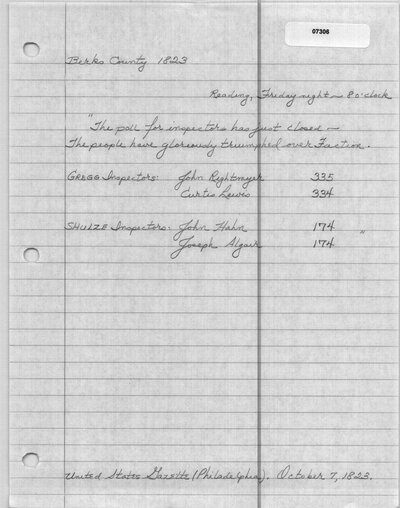 07306
Berks County 1823
Reading, Friday night — 8 o'clock
"The poll for inspectors has just closed —
The people have gloriously triumphed over Faction.
GREGG Inspectors: John Rightmyer 335
Curtis Lewis 334
SHULZE Inspectors: John Hahn 174 "
Joseph Algair 174
United States Gazette (Philadelphia). October 7, 1823.